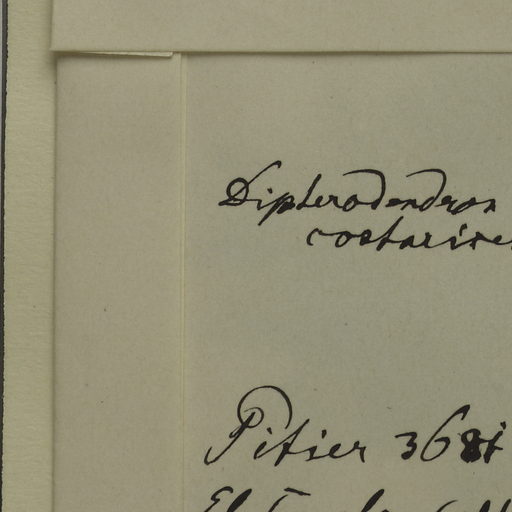 Dipterodendron
costarice
Pitier 3681
El